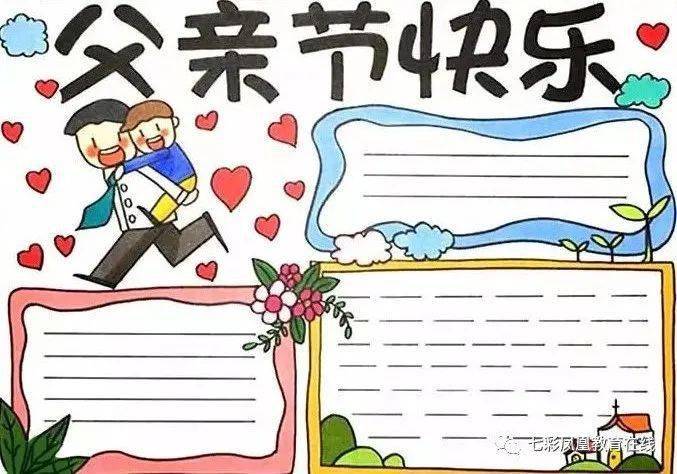 父亲节快乐
七彩凤凰教育在线